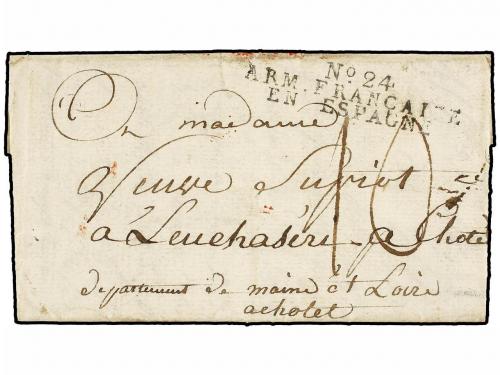 No 24
ARM. FRANÇAISE
EN ESPAGNE
A madame
Veuve Supiot
10
a
departement de maine et Loire
acholet